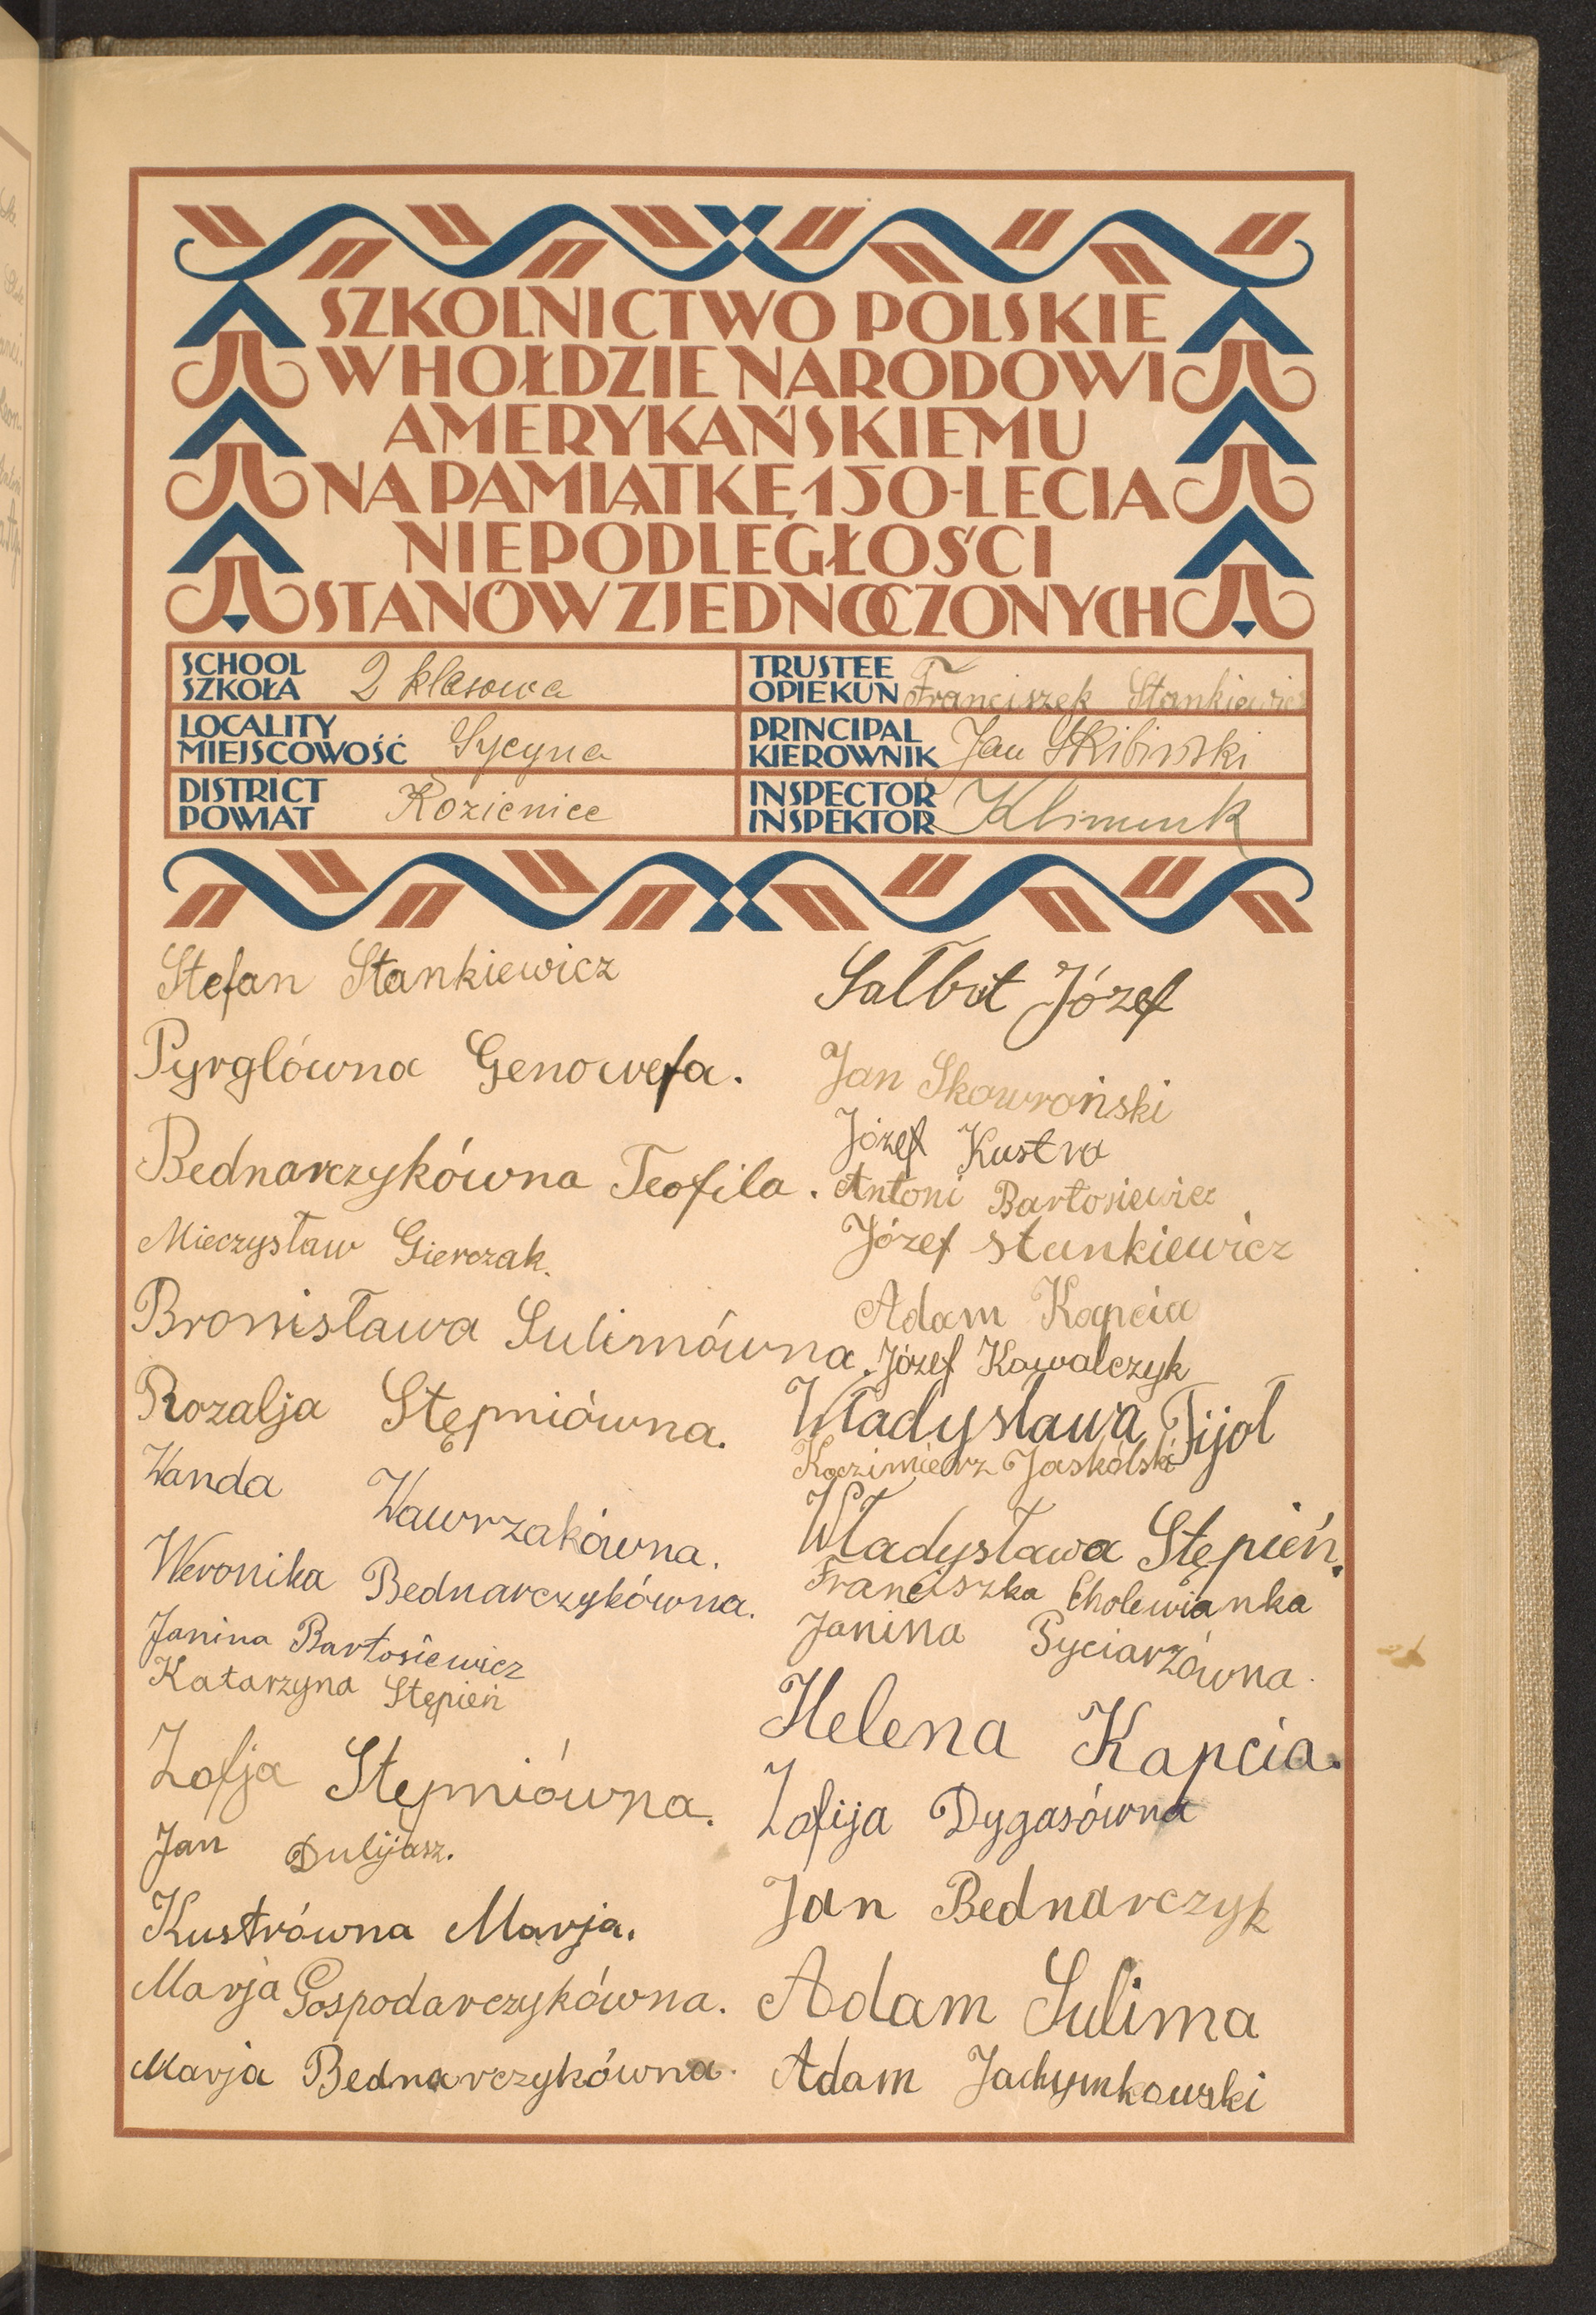 SZKOLNICTWO POLSKIE
W HOŁDZIE NARODOWI
AMERYKAŃSKIEMU
NA PAMIĄTKĘ 150-LECIA
NIEPODLEGŁOŚCI
STANÓW ZJEDNOCZONYCH
SCHOOL
SZKOŁA 2 klasowa
LOCALITY
MIEJSCOWOŚĆ Sycyna
DISTRICT
POWIAT Kozienice
TRUSTEE
OPIEKUN Franciszek Stankiewicz
PRINCIPAL
KIEROWNIK Jan Skibiński
INSPECTOR
INSPEKTOR Klimiuk
Stefan Stankiewicz
Pyrglówna Genowefa.
Bednarczykówna Teofila.
Mieczysław Gierczak.
Bronisława Sulimówna.
Rozalja Stępniówna.
Wanda Wawrzakówna.
Weronika Bednarczykówna.
Janina Bartosiewicz
Katarzyna Stępień
Zofja Stępniówna.
Jan Dulijasz.
Kustrówna Marja.
Marja Gospodarczykówna.
Marja Bednarczykówna.
Sałbut Józef
Jan Skowroński
Józef Kustra
Antoni Bartosiewicz
Józef Stankiewicz
Adam Kapcia
Józef Kowalczyk
Władysława Fijoł
Kazimierz Jaskólski
Władysława Stępień.
Franciszka Cholewianka
Janina Pyciarzówna.
Helena Kapcia.
Zofija Dygasówna
Jan Bednarczyk
Adam Sulima
Adam Jachymkowski